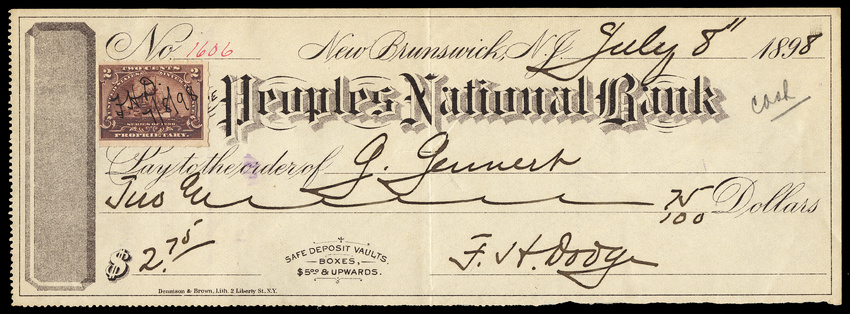 No. 1606 New Brunswick, N.J. July 8" 1898
2 TWO CENTS 2
SERIES OF 1898
PROPRIETARY.
7/8/98
THE
Peoples National Bank
cash
Pay to the order of G. Gennert
Two 75/100 Dollars
$ 2.75
SAFE DEPOSIT VAULTS.
BOXES,
$5.00 & UPWARDS.
F. H. Dodge
Dennison & Brown, Lith. 2 Liberty St, N.Y.